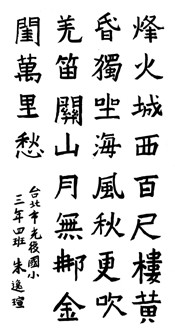 烽火城西百尺樓黃
昏獨坐海風秋更吹
羌笛關山月無那金
閨萬里愁
台北市光復國小
三年四班 朱逸瑄